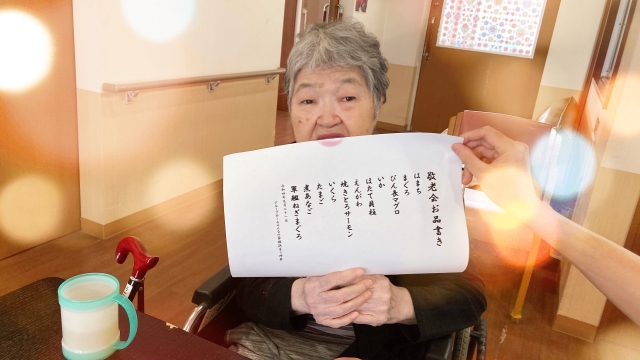 敬老会お品書き
はまち
まぐろ
びん長マグロ
いか
ほたて貝柱
えんがわ
焼きとろサーモン
いくら
たまご
煮あなご
軍艦ねぎまぐろ